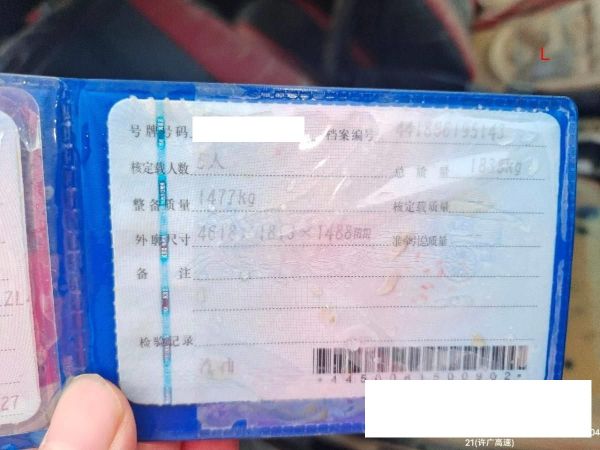 L
号牌号码 档案编号
核定载人数 5人 总质量 1835kg
整备质量 1477kg 核定载质量
外廓尺寸 4618×1813×1488mm 准牵引总质量
备注
检验记录
汽油
21(许广高速)